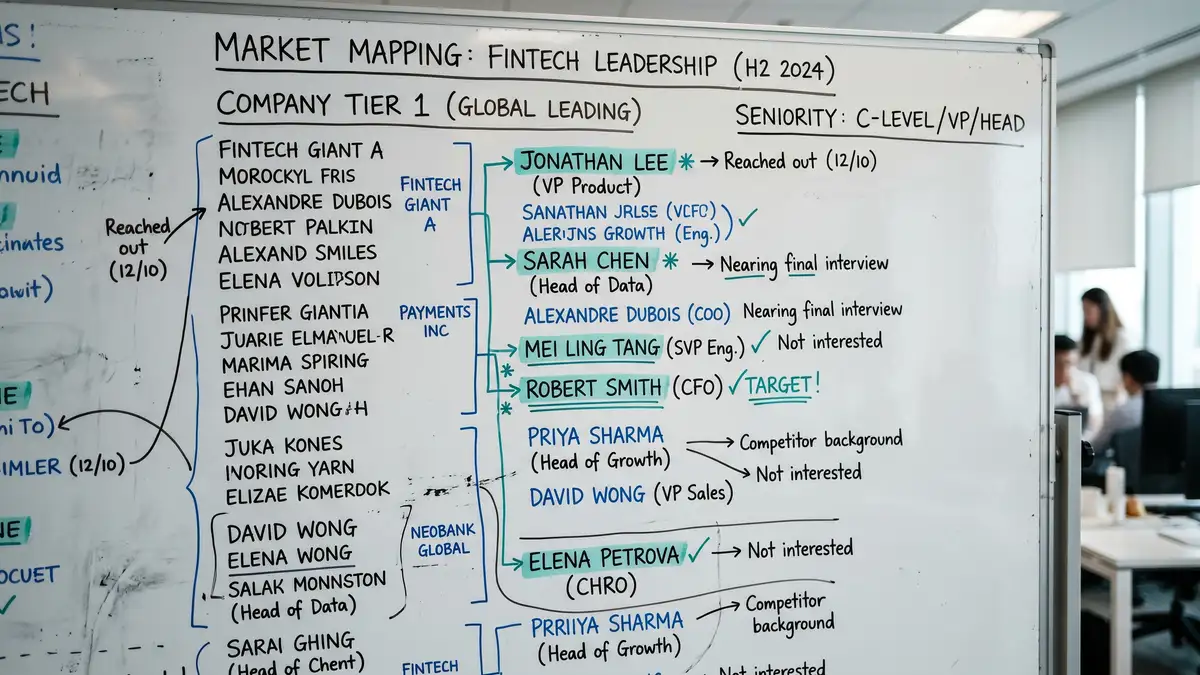 S!
MARKET MAPPING: FINTECH LEADERSHIP (H2 2024)
ECH
COMPANY TIER 1 (GLOBAL LEADING)
SENIORITY: C-LEVEL/VP/HEAD
E
nnuid
cinates
owit)
Reached
out
(12/10)
NE
ni To)
SIMLER (12/10)
NE
OCUET
✓
FINTECH GIANT A
MOROCKYL FRIS
ALEXANDRE DUBOIS
NOBERT PALKIN
ALEXAND SMILES
ELENA VOLIPSON
FINTECH
GIANT
A
PRINFER GIANTIA
JUARIE ELMANUEL-R
MARIMA SPIRING
EHAN SANOH
DAVID WONG
PAYMENTS
INC
JUKA KONES
INORING YARN
ELIZAE KOMERDOK
DAVID WONG
ELENA WONG
SALAK MONNSTON
(Head of Data)
NEOBANK
GLOBAL
SARAI GHING
(Head of Chent)
FINTECH
JONATHAN LEE * → Reached out (12/10)
(VP Product)
SANATHAN JRLSE (VCFC)
ALERIJNS GROWTH (Eng.) ✓
SARAH CHEN * → Nearing final interview
(Head of Data)
ALEXANDRE DUBOIS (COO) Nearing final interview
MEI LING TANG (SVP Eng.) ✓ Not interested
*
ROBERT SMITH (CFO) ✓ TARGET!
*
PRIYA SHARMA → Competitor background
(Head of Growth) → Not interested
DAVID WONG (VP Sales)
ELENA PETROVA ✓ → Not interested
(CHRO)
PRRIIYA SHARMA → Competitor
background
(Head of Growth)
Not interested